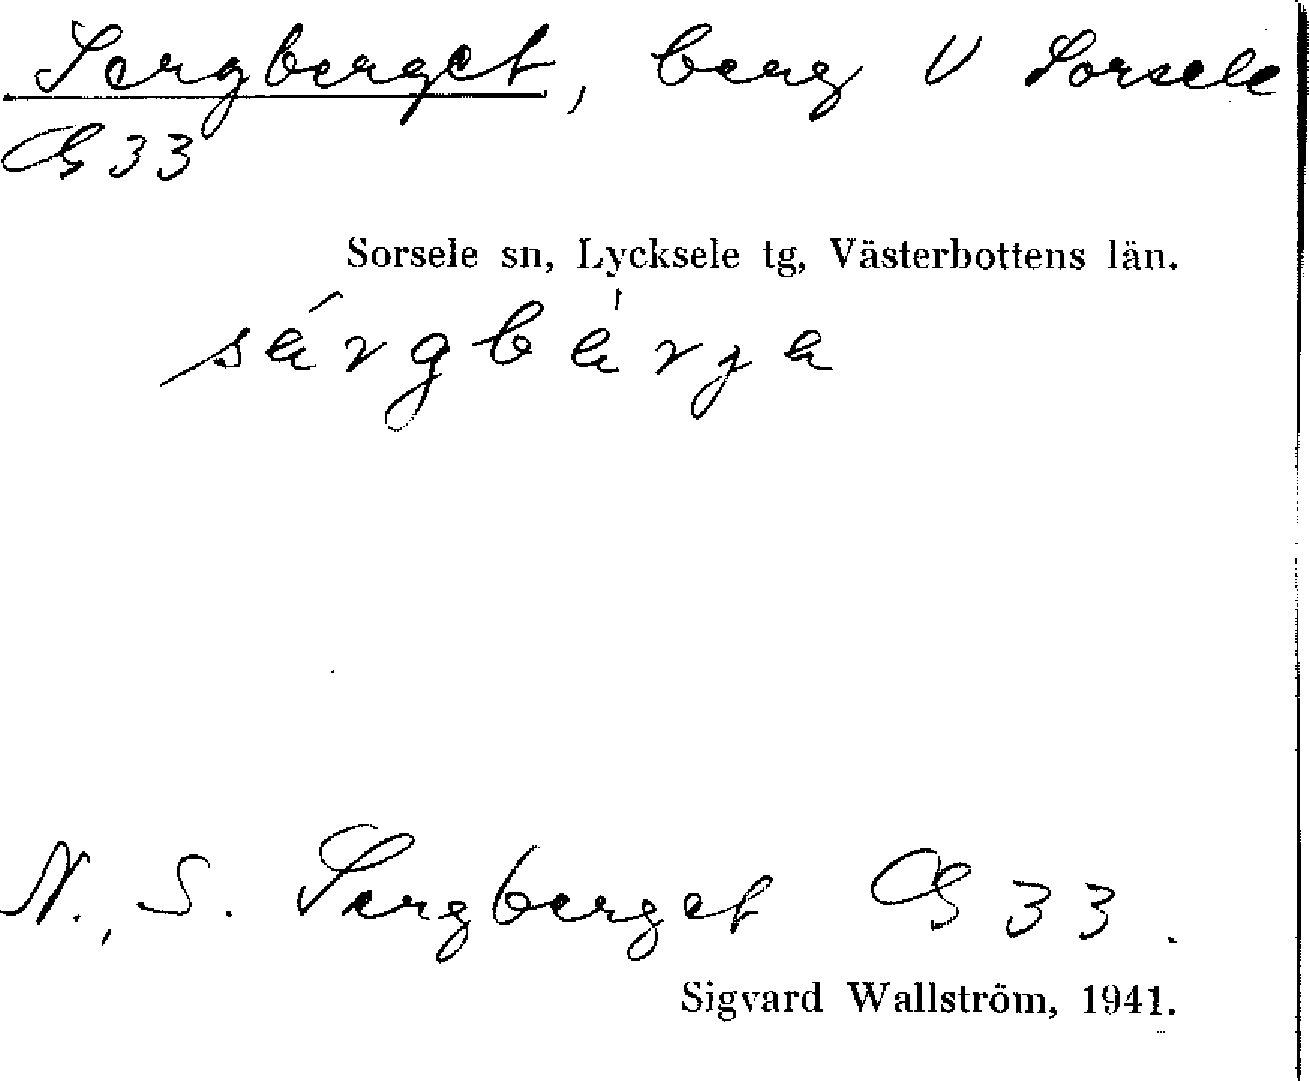 Sergberget, berg V Sorsele
G 33
Sorsele sn, Lycksele tg, Västerbottens län.
särgbärja
N., S. Sergberget G 33.
Sigvard Wallström, 1941.